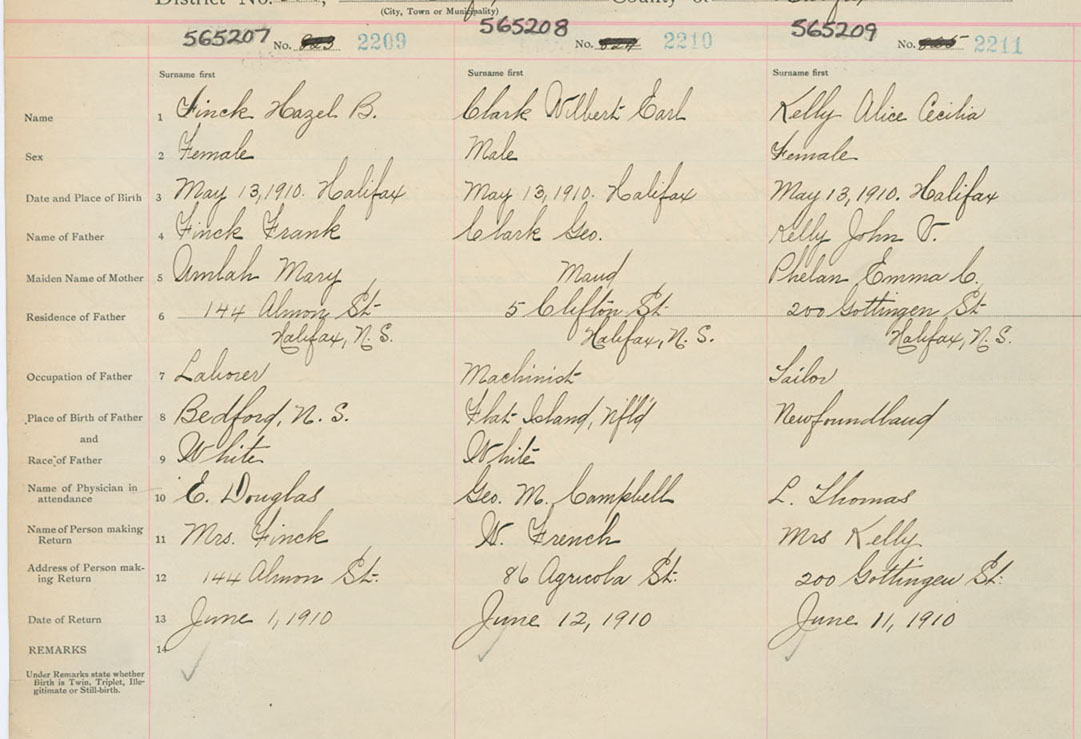 District No.
County of
(City, Town or Municipality)
565207 No. 823 2209
565208 No. 824 2210
565209 No. 825 2211
Surname first Surname first Surname first
Name 1 Finck Hazel B. Clark Wilbert Earl Kelly Alice Cecilia
Sex 2 Female Male Female
Date and Place of Birth 3 May 13, 1910. Halifax May 13, 1910. Halifax May 13, 1910. Halifax
Name of Father 4 Finck Frank Clark Geo. Kelly John V.
Maiden Name of Mother 5 Amlah Mary Maud Phelan Emma C.
Residence of Father 6 144 Almon St. 5 Clifton St. 200 Gottingen St
Halifax, N.S. Halifax, N.S. Halifax, N.S.
Occupation of Father 7 Laborer Machinist Sailor
Place of Birth of Father 8 Bedford, N.S. Flat Island, Nfl'd Newfoundland
and
Race of Father 9 White White
Name of Physician in
attendance 10 E. Douglas Geo. M. Campbell L. Thomas
Name of Person making
Return 11 Mrs. Finck W. French Mrs Kelly
Address of Person mak-
ing Return 12 144 Almon St. 86 Agricola St. 200 Gottingen St.
Date of Return 13 June 1, 1910 June 12, 1910 June 11, 1910
REMARKS 14
Under Remarks state whether
Birth is Twin, Triplet, Ille-
gitimate or Still-birth.